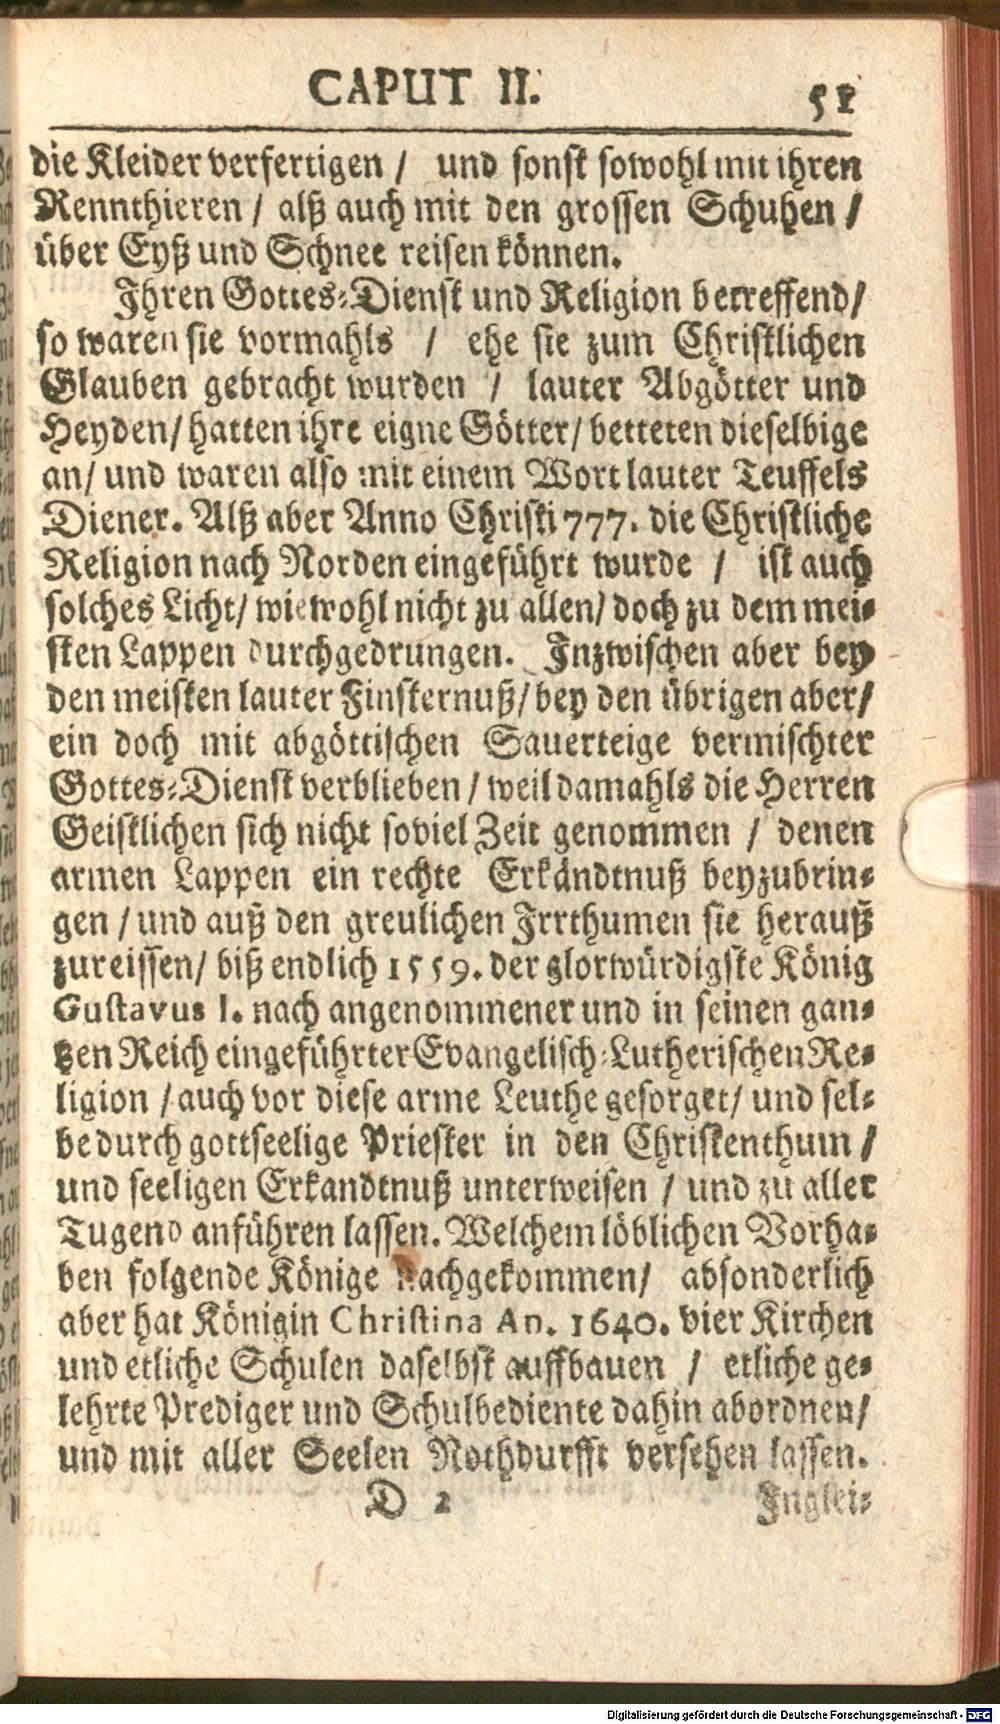 CAPUT II. 51
die Kleider verfertigen / und sonst sowohl mit ihren
Rennthieren / alß auch mit den grossen Schuhen /
über Eyß und Schnee reisen können.
Ihren Gottes-Dienst und Religion betreffend/
so waren sie vormahls / ehe sie zum Christlichen
Glauben gebracht wurden / lauter Abgötter und
Heyden/ hatten ihre eigne Götter/ betteten dieselbige
an/ und waren also mit einem Wort lauter Teuffels
Diener. Alß aber Anno Christi 777. die Christliche
Religion nach Norden eingeführt wurde / ist auch
solches Licht/ wiewohl nicht zu allen/ doch zu dem mei-
sten Lappen durchgedrungen. Inzwischen aber bey
den meisten lauter Finsternuß/ bey den übrigen aber/
ein doch mit abgöttischen Sauerteige vermischter
Gottes-Dienst verblieben / weil damahls die Herren
Geistlichen sich nicht soviel Zeit genommen / denen
armen Lappen ein rechte Erkändtnuß beyzubrin-
gen / und auß den greulichen Irrthumen sie herauß
zureissen/ biß endlich 1559. der glorwürdigste König
Gustavus I. nach angenommener und in seinen gan-
tzen Reich eingeführter Evangelisch-Lutherischen Re-
ligion / auch vor diese arme Leuthe gesorget/ und sel-
be durch gottseelige Priester in den Christenthum /
und seeligen Erkandtnuß unterweisen / und zu aller
Tugend anführen lassen. Welchem löblichen Vorha-
ben folgende Könige nachgekommen/ absonderlich
aber hat Königin Christina An. 1640. vier Kirchen
und etliche Schulen daselbst auffbauen / etliche ge-
lehrte Prediger und Schulbediente dahin abordnen/
und mit aller Seelen Nothdurfft versehen lassen.
D 2 Inglei-
Digitalisierung gefördert durch die Deutsche Forschungsgemeinschaft - DFG